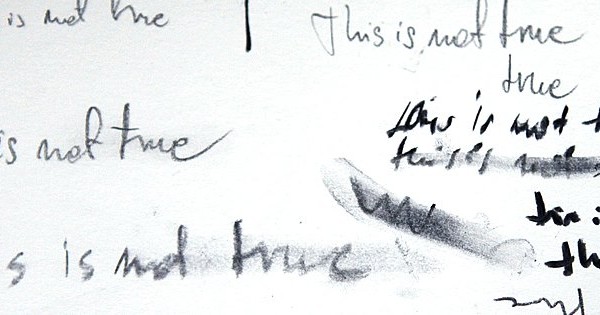 is not true
This is not true
true
this is not t
this is not
is not true
s is not true
th